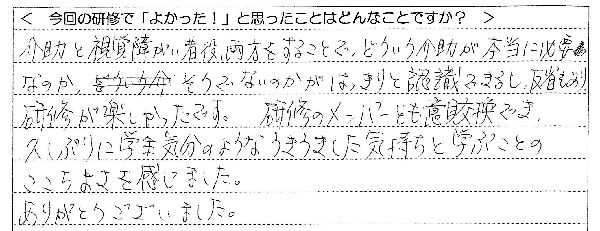 < 今回の研修で「よかった！」と思ったことはどんなことですか？ >
介助と視覚障がい者役、両方をすることで、どういう介助が本当に必要
なのか、そうでないのかがはっきりと認識できるし、反省もあり
研修が楽しかったです。 研修のメンバーとも意見交換でき、
久しぶりに学生気分のようなうきうきした気持ちと学ぶことの
ここちよさを感じました。
ありがとうございました。